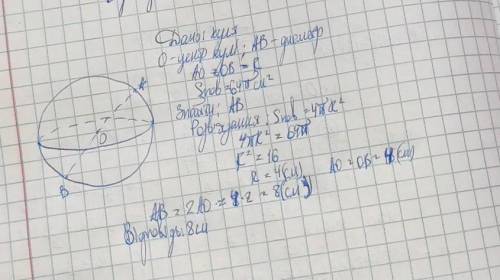 Дано: куля
О-центр кулі; АВ-діаметр
АО = ОВ = R
Sпов = 64π см²
Знайти: АВ
Розв'язання: Sпов = 4πR²
4πR² = 64π
R² = 16
R = 4(см) АО = ОВ = 4(см)
АВ = 2АО = 4·2 = 8(см)
Відповідь: 8см
А
О
В